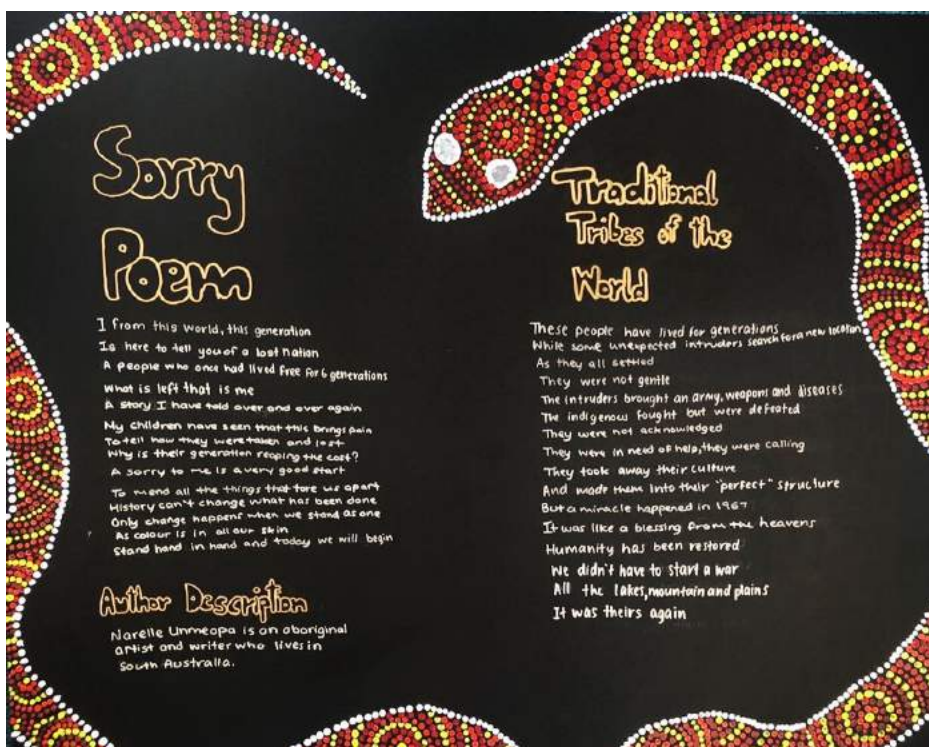 Sorry
Poem
I from this world, this generation
Is here to tell you of a lost nation
A people who once had lived free for 6 generations
What is left that is me
A story I have told over and over again
My children have seen that this brings pain
To tell how they were taken and lost
Why is their generation reaping the cost?
A sorry to me is a very good start
To mend all the things that tore us apart
History can't change what has been done
Only change happens when we stand as one
As colour is in all our skin
Stand hand in hand and today we will begin
Author Description
Narelle Unmeopa is an aboriginal
artist and writer who lives in
South Australia.
Traditional
Tribes of the
World
These people have lived for generations
While some unexpected intruders search for a new location
As they all settled
They were not gentle
The intruders brought an army, weapons and diseases
The indigenous fought but were defeated
They were not acknowledged
They were in need of help, they were calling
They took away their culture
And made them into their "perfect" structure
But a miracle happened in 1967
It was like a blessing from the heavens
Humanity has been restored
We didn't have to start a war
All the lakes, mountain and plains
It was theirs again